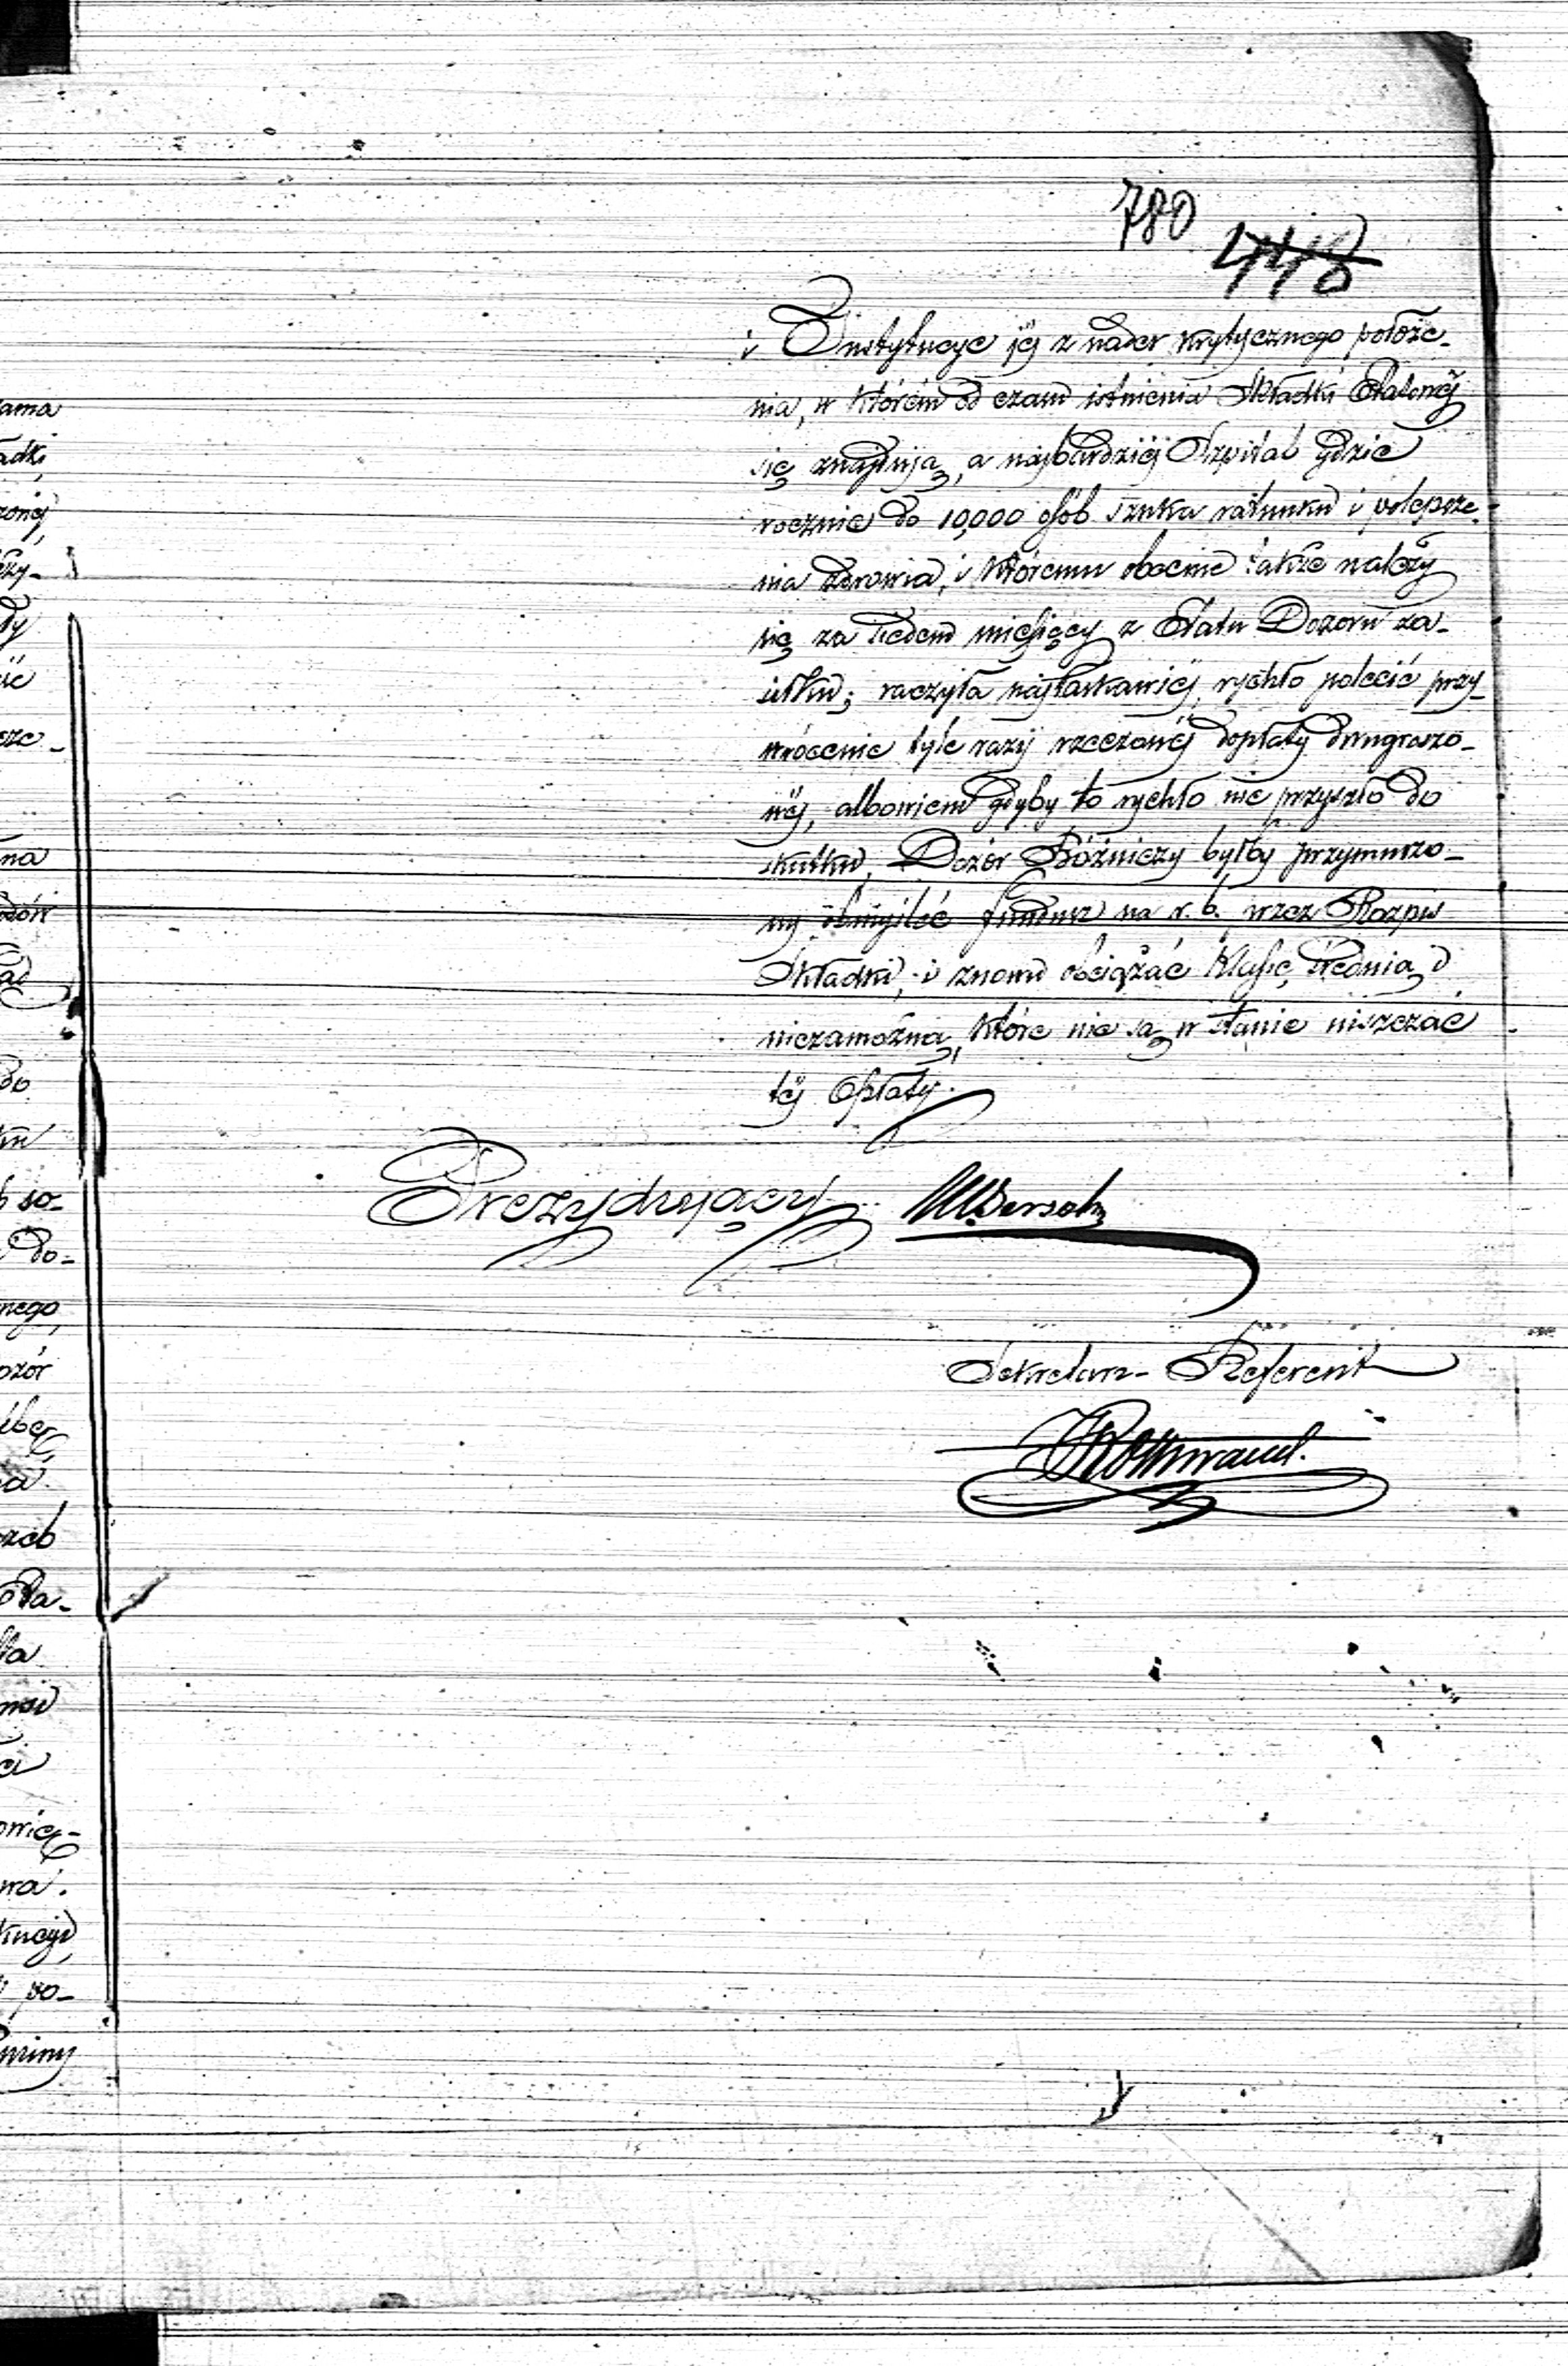 780
448
i Instytucye jéj z nader krytycznego położe-
nia, w którém od czasu istnienia Składki Etatowéj
się znajdują, a najbardziéj Szpital gdzie
rocznie do 10,000 osób szuka ratunku i polepsze-
nia zdrowia, i któremu obecnie także należy
się za siedem miesięcy z Etatu Dozoru za-
siłku; raczyła najłaskawiéj rychło polecić przy-
wrócenie tyle razy rzeczonéj dopłaty dwugroszo-
wéj, albowiem gdyby to rychło nie przyszło do
skutku, Dozór Bóżniczy byłby przymuszo-
ny obmyśleć fundusz na r. b. przez Rozpis
Składki, i znowu obciążać Klassę średnią i
niezamożną, które nie są w stanie uiszczać
téj Opłaty.
Prezydujący M Bersohn
Sekretarz-Referent
Rothwand.
ama
adki
zonéj
ść
sze-
na
do
so-
do-
nego
ozór
zeb
ła
wa.
po-
Gminy